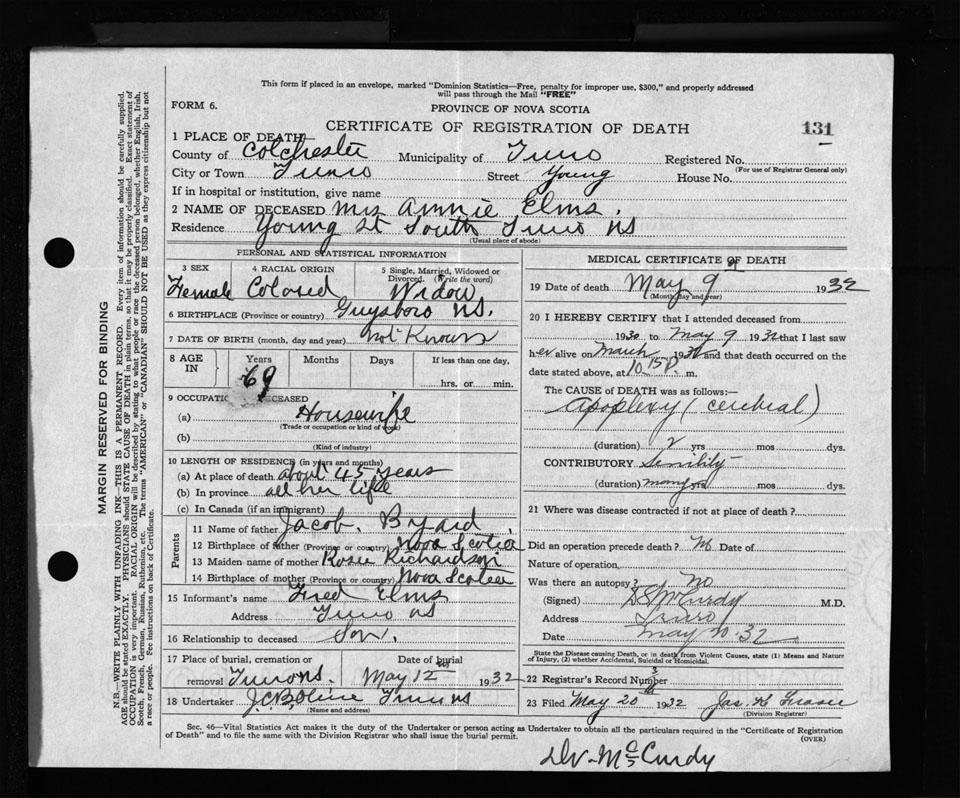 This form if placed in an envelope, marked "Dominion Statistics—Free, penalty for improper use, $300," and properly addressed
will pass through the Mail "FREE"
FORM 6.
PROVINCE OF NOVA SCOTIA
CERTIFICATE OF REGISTRATION OF DEATH
131
1 PLACE OF DEATH—
County of Colchester Municipality of Truro Registered No.
(For use of Registrar General only)
City or Town Truro Street Young House No.
If in hospital or institution, give name
2 NAME OF DECEASED Mrs Annie Elms.
Residence Young St South Truro NS
(Usual place of abode)
PERSONAL AND STATISTICAL INFORMATION
3 SEX 4 RACIAL ORIGIN 5 Single, Married, Widowed or
Divorced. (Write the word)
Female Colored Widow
6 BIRTHPLACE (Province or country) Guysboro NS.
7 DATE OF BIRTH (month, day and year) not Known
8 AGE IN Years Months Days If less than one day,
69 hrs. or min.
9 OCCUPATION DECEASED
(a) Housewife
(Trade or occupation or kind of work)
(b)
(Kind of industry)
10 LENGTH OF RESIDENCE (in years and months)
(a) At place of death about 45 years
(b) In province all her life
(c) In Canada (if an immigrant)
Parents
11 Name of father Jacob. Byard.
12 Birthplace of father (Province or country) Nova Scotia
13 Maiden name of mother Rosie Richardson
14 Birthplace of mother (Province or country) Nova Scotia
15 Informant's name Fred Elms
Address Truro NS
16 Relationship to deceased Son.
17 Place of burial, cremation or Date of burial
removal Truro NS. May 12th 1932
18 Undertaker Truro NS
(Name and address)
MEDICAL CERTIFICATE OF DEATH
19 Date of death May 9 1932
(Month, day and year)
20 I HEREBY CERTIFY that I attended deceased from
1930 to May 9 1932 that I last saw
her alive on March 1932 and that death occurred on the
date stated above, at 10.15 P. m.
The CAUSE of DEATH was as follows:—
Apoplexy (cerebral)
(duration) 2 yrs mos dys.
CONTRIBUTORY Senility
(duration) many yrs mos dys.
21 Where was disease contracted if not at place of death?
Did an operation precede death? No Date of
Nature of operation,
Was there an autopsy? No
(Signed) DS McCurdy M.D.
Address Truro
Date May 20.32
State the Disease causing Death, or in death from Violent Causes, state (1) Means and Nature
of Injury, (2) whether Accidental, Suicidal or Homicidal.
22 Registrar's Record Number 3
23 Filed May 20th 1932 Jas. H Fraser
(Division Registrar)
Sec. 46—Vital Statistics Act makes it the duty of the Undertaker or person acting as Undertaker to obtain all the particulars required in the "Certificate of Registration
of Death" and to file the same with the Division Registrar who shall issue the burial permit. (OVER)
Dr. McCurdy
MARGIN RESERVED FOR BINDING
N.B.—WRITE PLAINLY WITH UNFADING INK—THIS IS A PERMANENT RECORD. Every item of information should be carefully supplied.
AGE should be stated EXACTLY. PHYSICIANS should STATE CAUSE OF DEATH in plain terms, so that it may be properly classified. Exact statement of
OCCUPATION is very important. RACIAL ORIGIN will be described by stating to what people or race the deceased person belonged, whether English, Irish,
Scotch, French, German, Russian, Ruthenian, etc. The terms "AMERICAN" or "CANADIAN" SHOULD NOT BE USED as they express citizenship but not
a race or people. See instructions on back of Certificate.